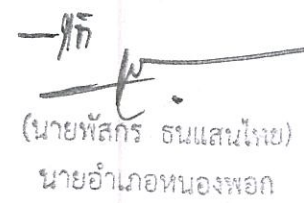 (นายพัสกร ธนแสนไทย)
นายอำเภอหนองพอก